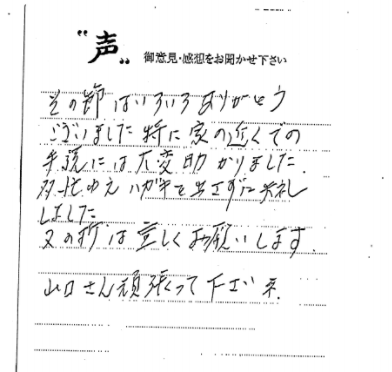 "声" 御意見・感想をお聞かせ下さい
その節はいろいろありがとう
ございました 特に家の近くでの
手続には大変助かりました.
多忙ゆえハガキを出さずに失礼
しました
又の折は宜しくお願いします.
山口さん頑張って下さい